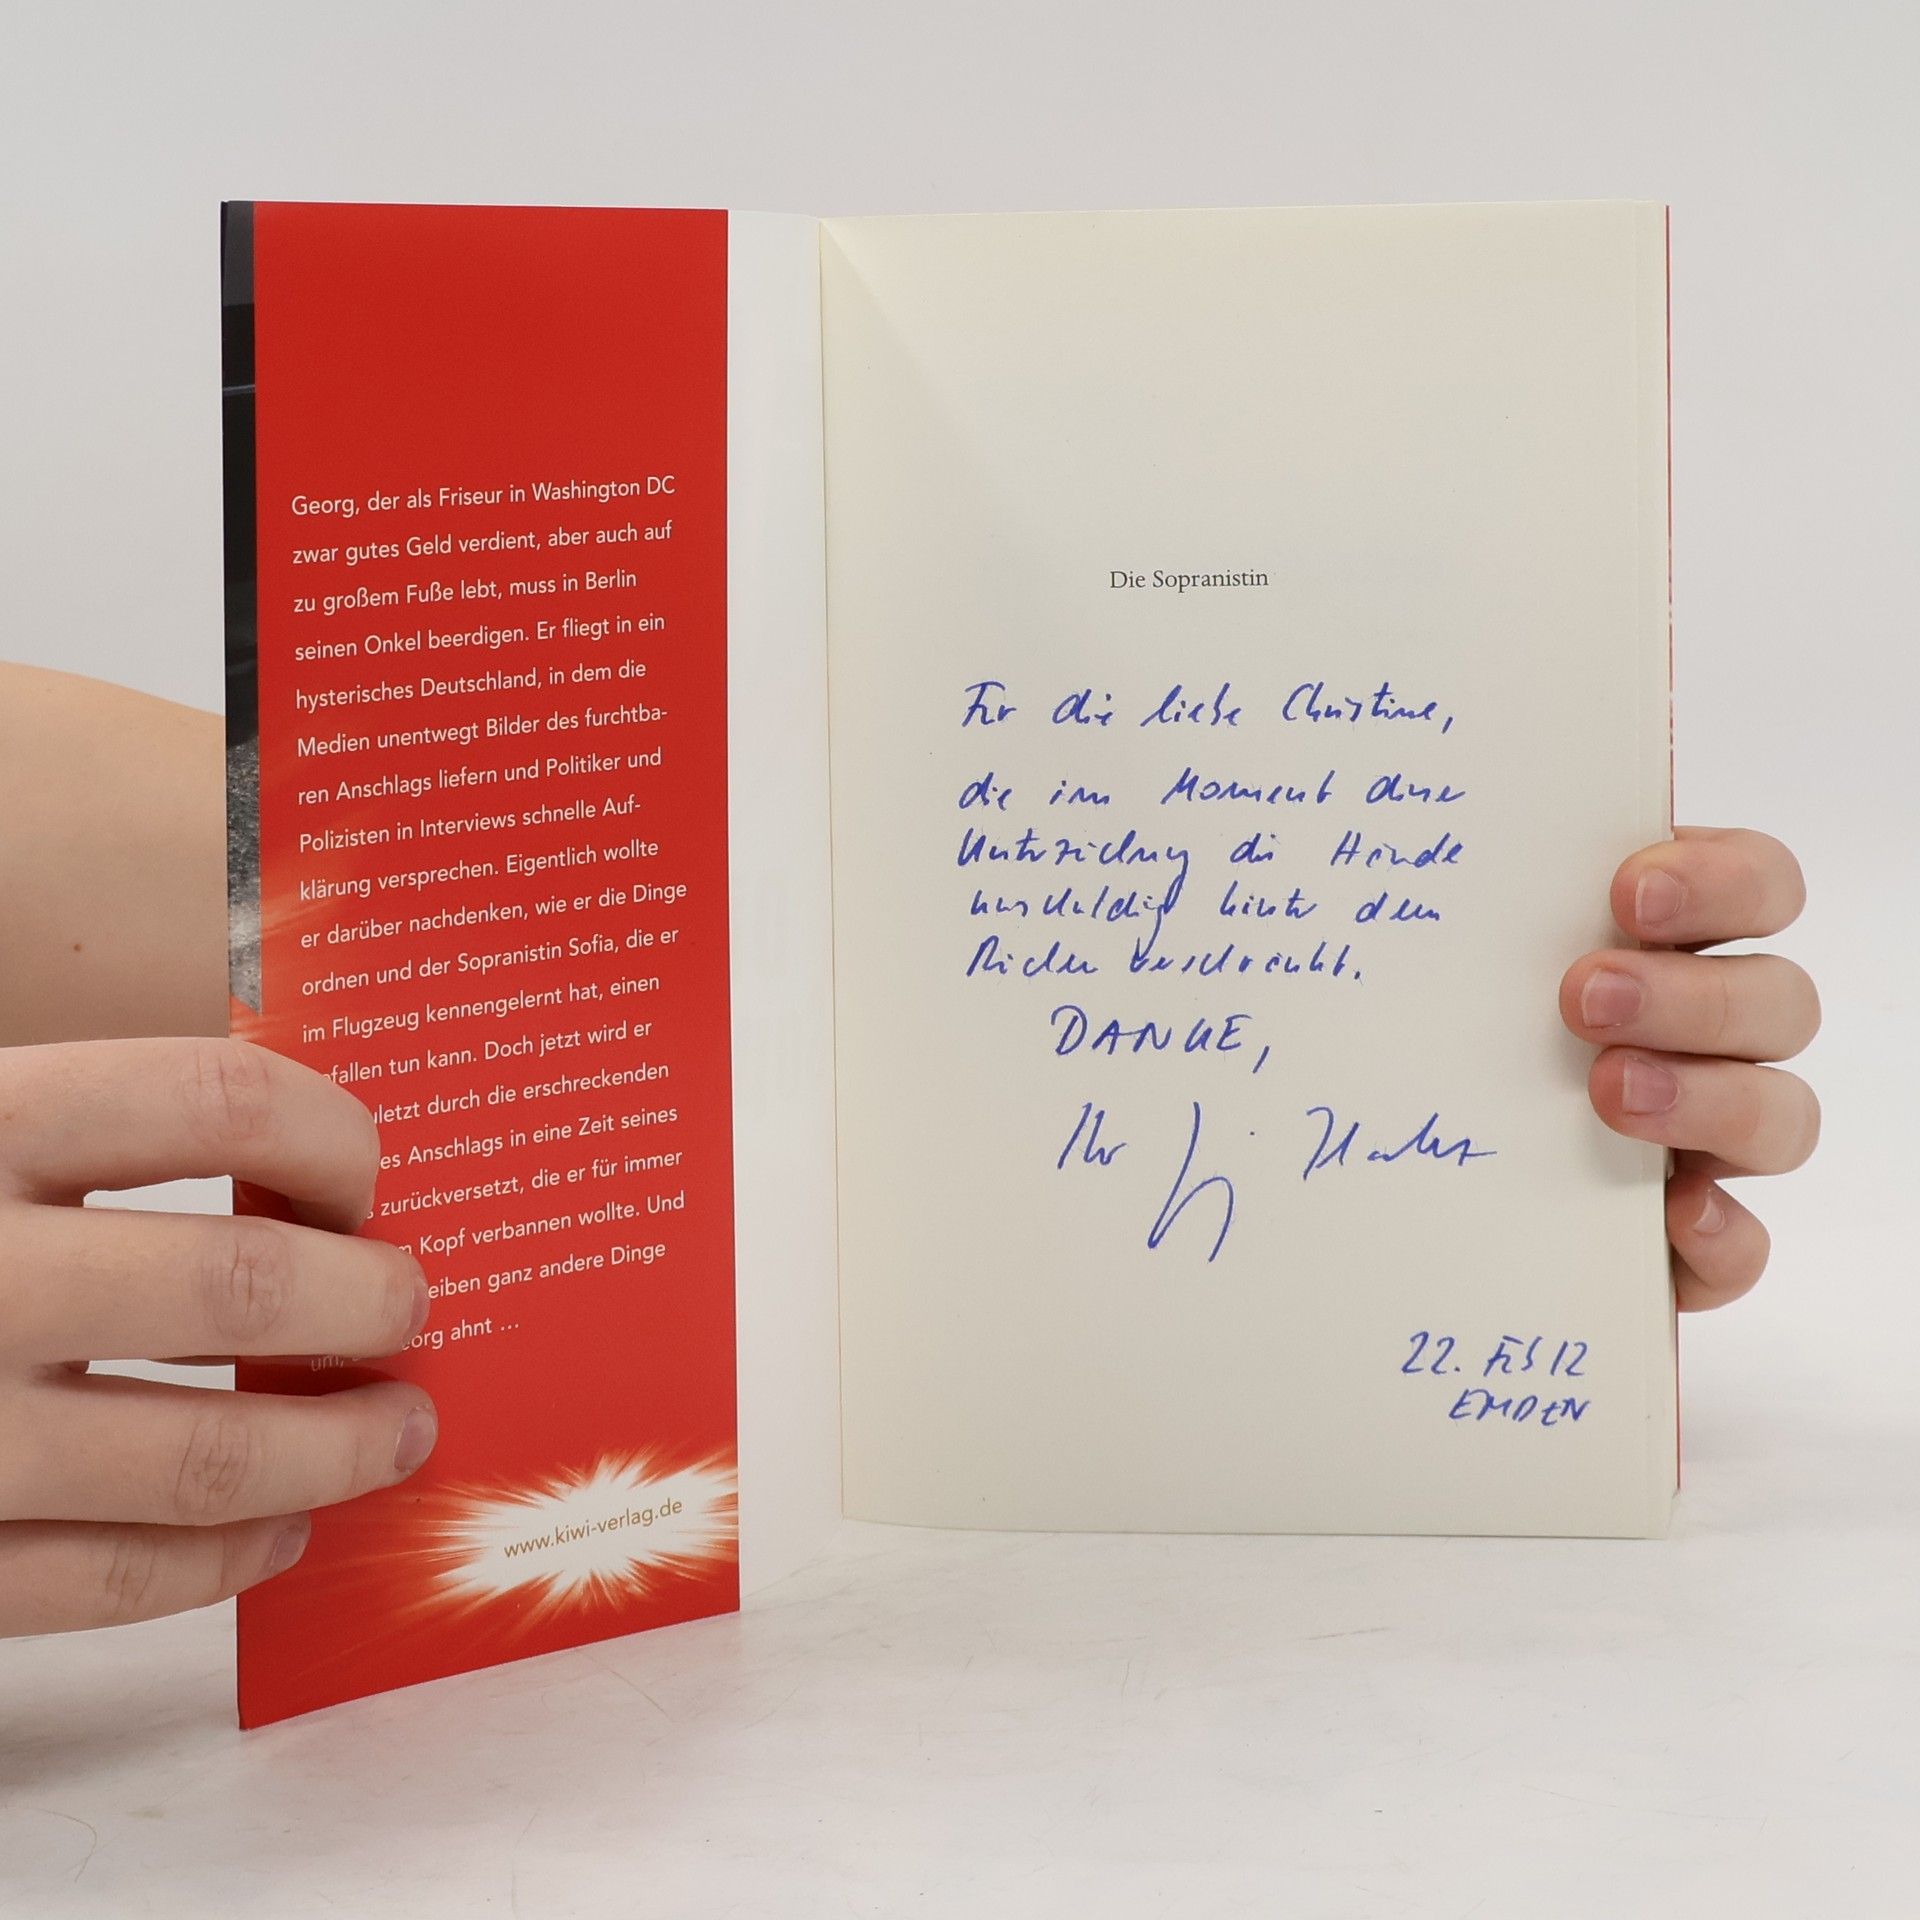 Georg, der als Friseur in Washington DC
zwar gutes Geld verdient, aber auch auf
zu großem Fuße lebt, muss in Berlin
seinen Onkel beerdigen. Er fliegt in ein
hysterisches Deutschland, in dem die
Medien unentwegt Bilder des furchtba-
ren Anschlags liefern und Politiker und
Polizisten in Interviews schnelle Auf-
klärung versprechen. Eigentlich wollte
er darüber nachdenken, wie er die Dinge
ordnen und der Sopranistin Sofia, die er
im Flugzeug kennengelernt hat, einen
fallen tun kann. Doch jetzt wird er
letzt durch die erschreckenden
es Anschlags in eine Zeit seines
zurückversetzt, die er für immer
Kopf verbannen wollte. Und
eiben ganz andere Dinge
um, org ahnt ...
www.kiwi-verlag.de
Die Sopranistin
Für die liebe Christine,
die im Moment dieser
Unterzeichnung die Hände
unschuldig hinter dem
Rücken verschränkt.
DANKE,
Ihr
22. Feb 12
EMDEN